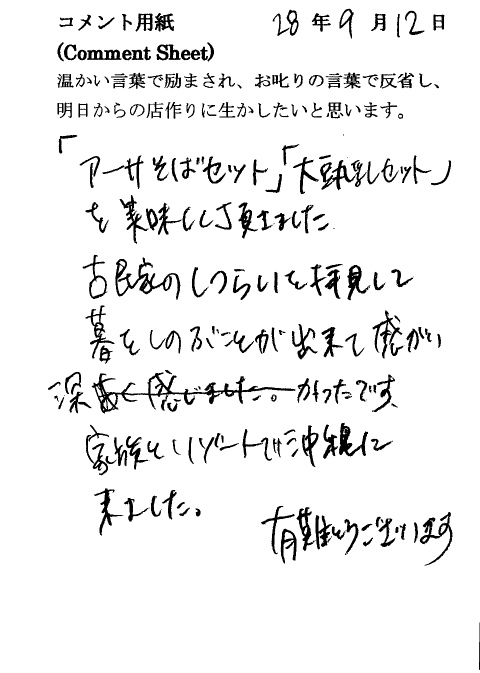 コメント用紙 28年9月12日
(Comment Sheet)
温かい言葉で励まされ、お叱りの言葉で反省し、
明日からの店作りに生かしたいと思います。
「アーサそばセット」「大豆乳セット」
を美味しく頂きました
古民家のしつらいを拝見して
暮をしのぶことが出来て感がい
深く感じました。かったです
家族とリゾートで沖縄に
来ました。
有難とうございます